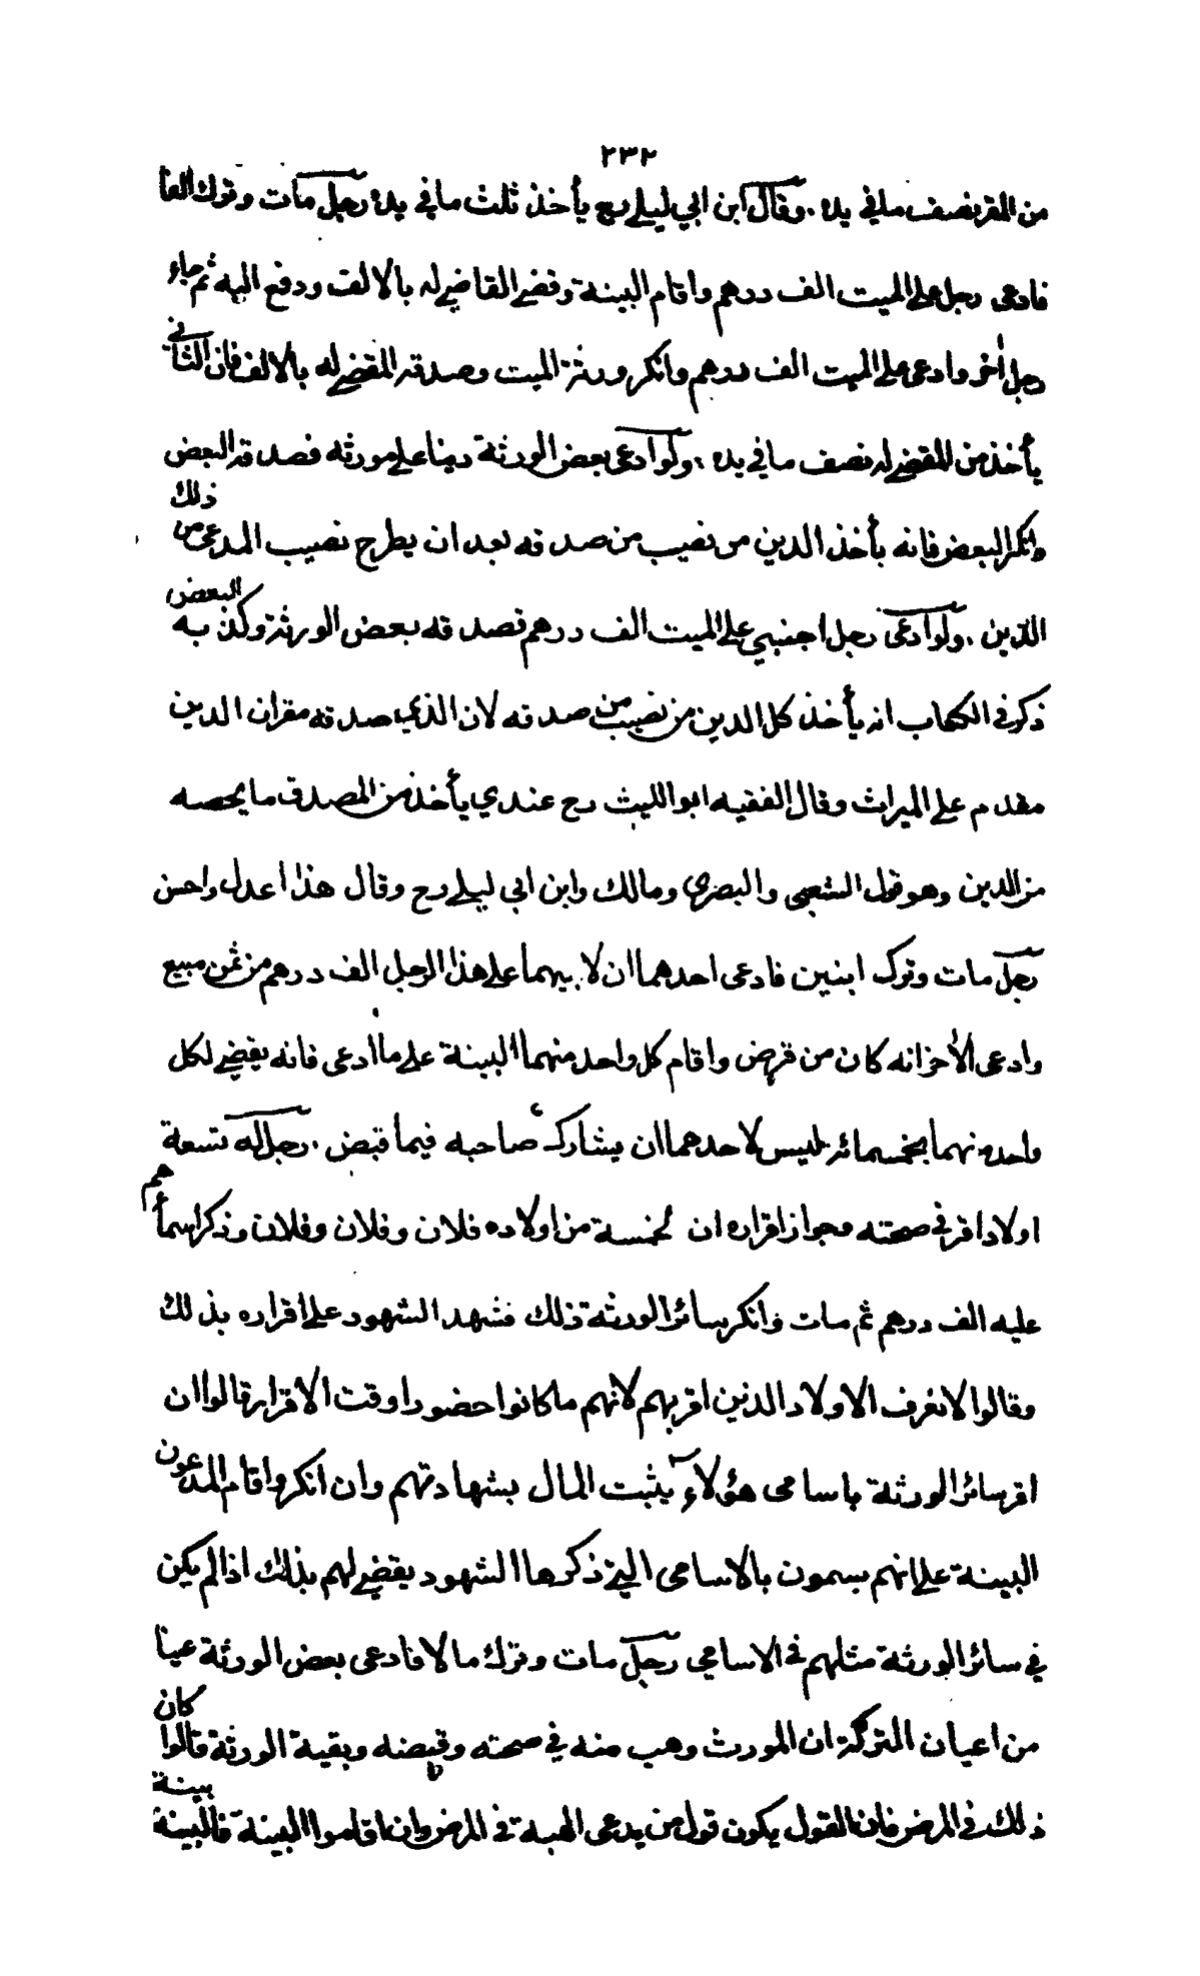 ٢٣٢
من المقر نصف ما في يده . وقال ابن ابي ليلى رح يأخذ ثلث ما في يده رجل مات وترك الفا
فادعى رجل على الميت الف درهم واقام البينة وقضى القاضي له بالالف ودفع اليه ثم جاء
رجل أخر وادعى على الميت الف درهم وانكر ورثة الميت وصدقه المقضي له بالالف فان الثاني
يأخذ من المقضي له نصف ما في يده . ولو ادعى بعض الورثة دينا على مورثه فصدقه البعض
وانكر البعض فانه يأخذ الدين من نصيب من صدقه بعد ان يطرح نصيب المدعي من ذلك
الدين . ولو ادعى رجل اجنبي على الميت الف درهم فصدقه بعض الورثة وكذبه البعض
ذكر في الكتاب انه يأخذ كل الدين من نصيب من صدقه لان الذي صدقه مقر ان الدين
مقدم على الميراث وقال الفقيه ابو الليث رح عندي يأخذ من المصدق ما يخصه
من الدين وهو قول الشعبي والبصري ومالك وابن ابي ليلى رح وقال هذا اعدل واحسن
رجل مات وترك ابنين فادعى احدهما ان لابيهما على هذا الرجل الف درهم من ثمن مبيع
وادعى الأخر انه كان من قرض واقام كل واحد منهما البينة على ما ادعى فانه يقضي لكل
واحد منهما بخمسمائة وليس لاحدهما ان يشارك صاحبه فيما قبض . رجل له تسعة
اولاد اقر في صحته وجواز اقراره ان لخمسة من اولاده فلان وفلان وفلان وذكر اسمأهم
عليه الف درهم ثم مات وانكر سائر الورثة ذلك فشهد الشهود على اقراره بذلك
وقالوا لا نعرف الاولاد الذين اقر بهم لانهم ما كانوا حضورا وقت الاقرار قالوا ان
اقر سائر الورثة باسامى هؤلاء يثبت المال بشهادتهم وان انكروا واقام المدعون
البينة على انهم يسمون بالاسامى التي ذكرها الشهود يقضي لهم بذلك اذا لم يكن
في سائر الورثة مثلهم في الاسامي رجل مات وترك مالا فادعى بعض الورثة عينا
من اعيان التركة ان المورث وهب منه في صحته وقبضه وبقية الورثة قالوا كان
ذلك في المرض فان القول يكون قول من يدعى الهبة في المرض وان اقاموا البينة فالبينة بينة